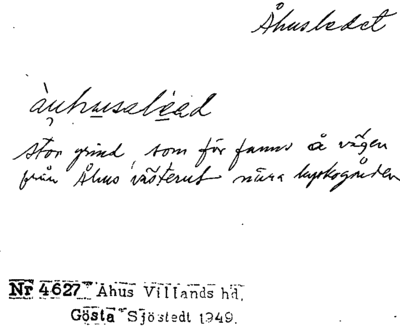 Åhusledet
àu̯husalèad
stor grind, som förr fanns å vägen
från Åhus västerut nära kyrkogården
Nr 4627 Åhus Villands hd.
Gösta Sjöstedt 1949.